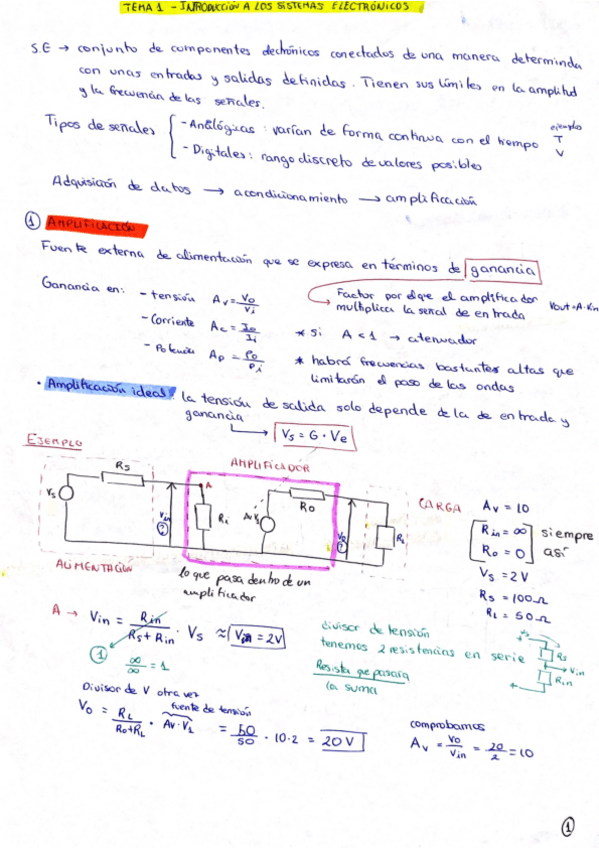 TEMA 1 - INTRODUCCIÓN A LOS SISTEMAS ELECTRÓNICOS
S.E → conjunto de componentes electrónicos conectados de una manera determinda
con unas entradas y salidas definidas. Tienen sus límites en la amplitud
y la frecuencia de las señales.
Tipos de señales { - Analógicas: varían de forma continua con el tiempo
- Digitales: rango discreto de valores posibles
ejemplos
T
V
Adquisición de datos → acondicionamiento → amplificación
① AMPLIFICACIÓN
Fuente externa de alimentación que se expresa en términos de ganancia
Factor por el que el amplificador
multiplica la señal de entrada Vout=A·Vin
Ganancia en: - tensión Av = Vo/Vi
- Corriente Ac = Io/Ii
- Potencia Ap = Po/Pi
* Si A < 1 → atenuador
* habrá frecuencias bastantes altas que
limitarán el paso de las ondas
• Amplificación ideal: la tensión de salida solo depende de la de entrada y
ganancia
Vs = G · Ve
EJEMPLO
AMPLIFICADOR
Rs
Vs
A
Vin
?
Ri
Ro
?
RL
ALIMENTACIÓN
lo que pasa dentro de un
amplificador
CARGA
Av = 10
Rin = ∞
Ro = 0
siempre
así
Vs = 2V
Rs = 100Ω
RL = 50Ω
A → Vin = Rin/(Rs + Rin) · Vs ≈ Vin = 2V
① ∞/∞ = 1
divisor de tensión
tenemos 2 resistencias en serie
la suma
Rs
Vin
Rin
Divisor de V otra vez
fuente de tensión
Vo = RL/(Ro+RL) · Av·V1 = 50/50 · 10·2 = 20V
comprobamos
Av = Vo/Vin = 20/2 = 10
①